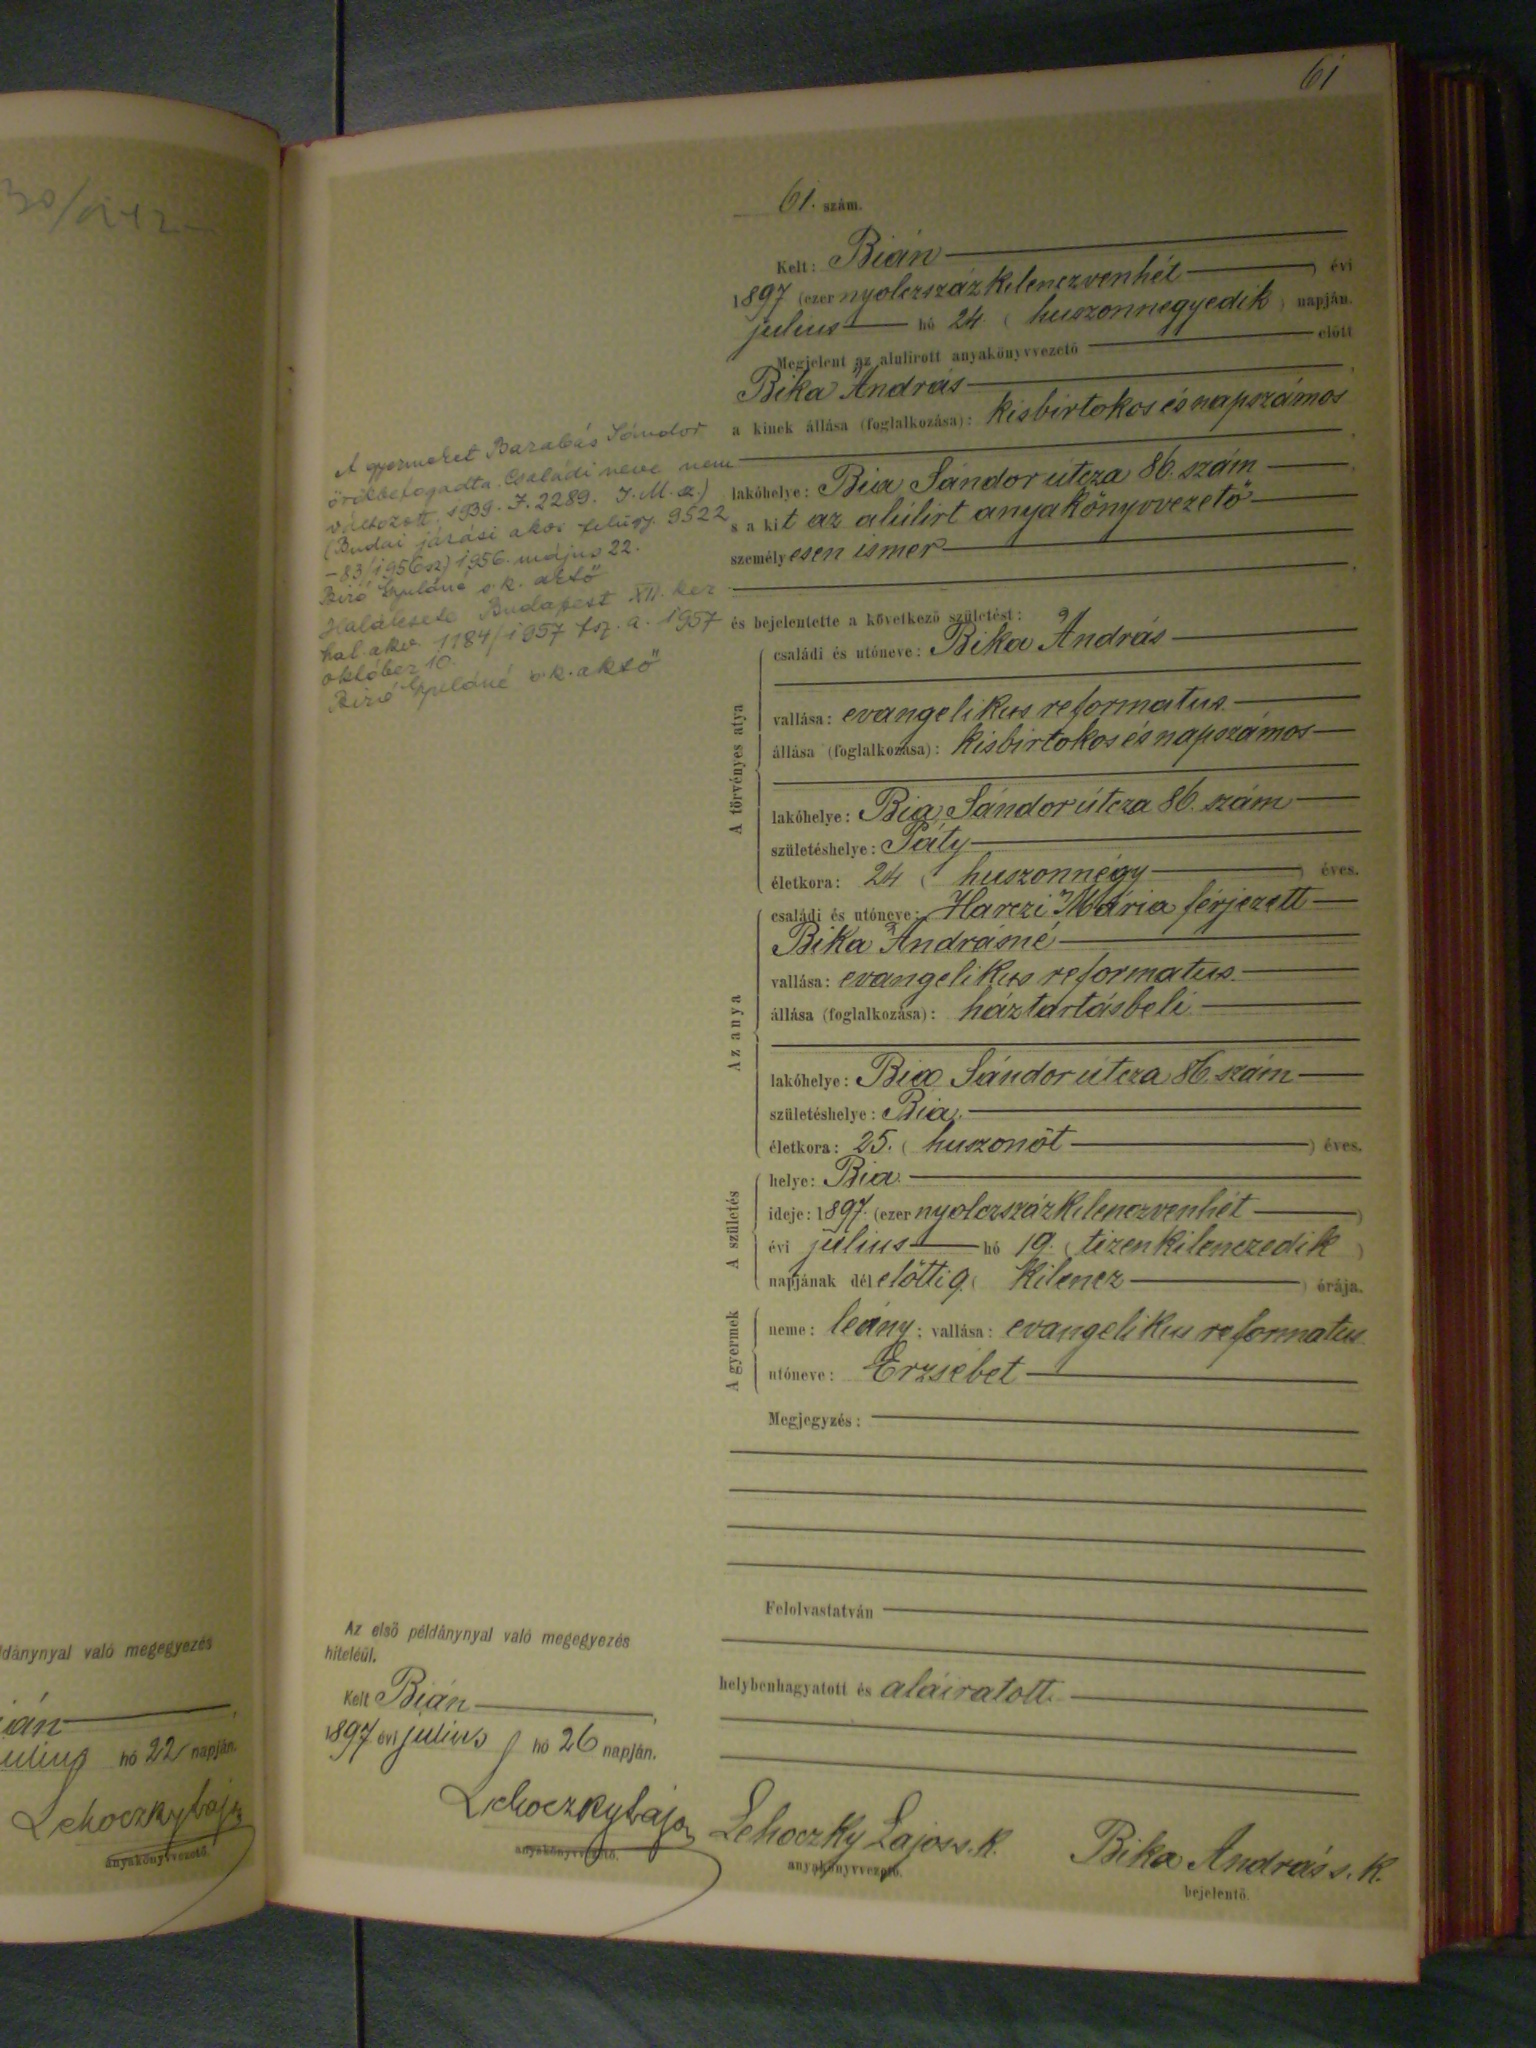 61
61. szám.
Kelt: Bián
1897 (ezer nyolczszázkilenczvenhét ) évi
julius hó 24 ( huszonnegyedik ) napján.
Megjelent az alulirott anyakönyvvezető előtt
Bika András
a kinek állása (foglalkozása): kisbirtokos és napszámos
lakóhelye: Bia Sándor útcza 86. szám
s a kit az alúlirt anyakönyvvezető
személyesen ismer
és bejelentette a következő születést:
A törvényes atya
családi és utóneve: Bika András
vallása: evangelikus reformatus
állása (foglalkozása): kisbirtokos és napszámos
lakóhelye: Bia Sándor útcza 86. szám
születéshelye: Páty
életkora: 24 ( huszonnégy ) éves.
Az anya
családi és utóneve: Harczi Mária férjezett
Bika Andrásné
vallása: evangelikus reformatus
állása (foglalkozása): háztartásbeli
lakóhelye: Bia Sándor útcza 86. szám
születéshelye: Bia
életkora: 25. ( huszonöt ) éves.
A születés
helye: Bia
ideje: 1897. (ezer nyolczszázkilenczvenhét )
évi julius hó 19. ( tizenkilenczedik )
napjának délelőtti 9 ( kilencz ) órája.
A gyermek
neme: leány; vallása: evangelikus reformatus
utóneve: Erzsébet
Megjegyzés:
Felolvastatván
helybenhagyatott és aláiratott.
Lehoczky Lajos s. k.
anyakönyvvezető.
Bika András s. k.
bejelentő.
A gyermeket Barabás Sándor
örökbefogadta. Családi neve nem
változott. 1939. I. 2289. I. M. sz.)
(Budai járási akv. felügy. 9522
-83/1956 sz) 1956. május 22.
Biró Gyuláné s.k. aktő
Halálesete Budapest XII. ker
hal. akv. 1184/1957 fsz. a. 1957
október 10
Biró Gyuláné s.k. aktő
Az első példánynyal való megegyezés
hiteléül.
Kelt Bián
1897 évi julius hó 26 napján.
Lehoczky Lajos
anyakönyvvezető.
ldánynyal való megegyezés
ián
ulius hó 22 napján.
Lehoczky Lajos
anyakönyvvezető.